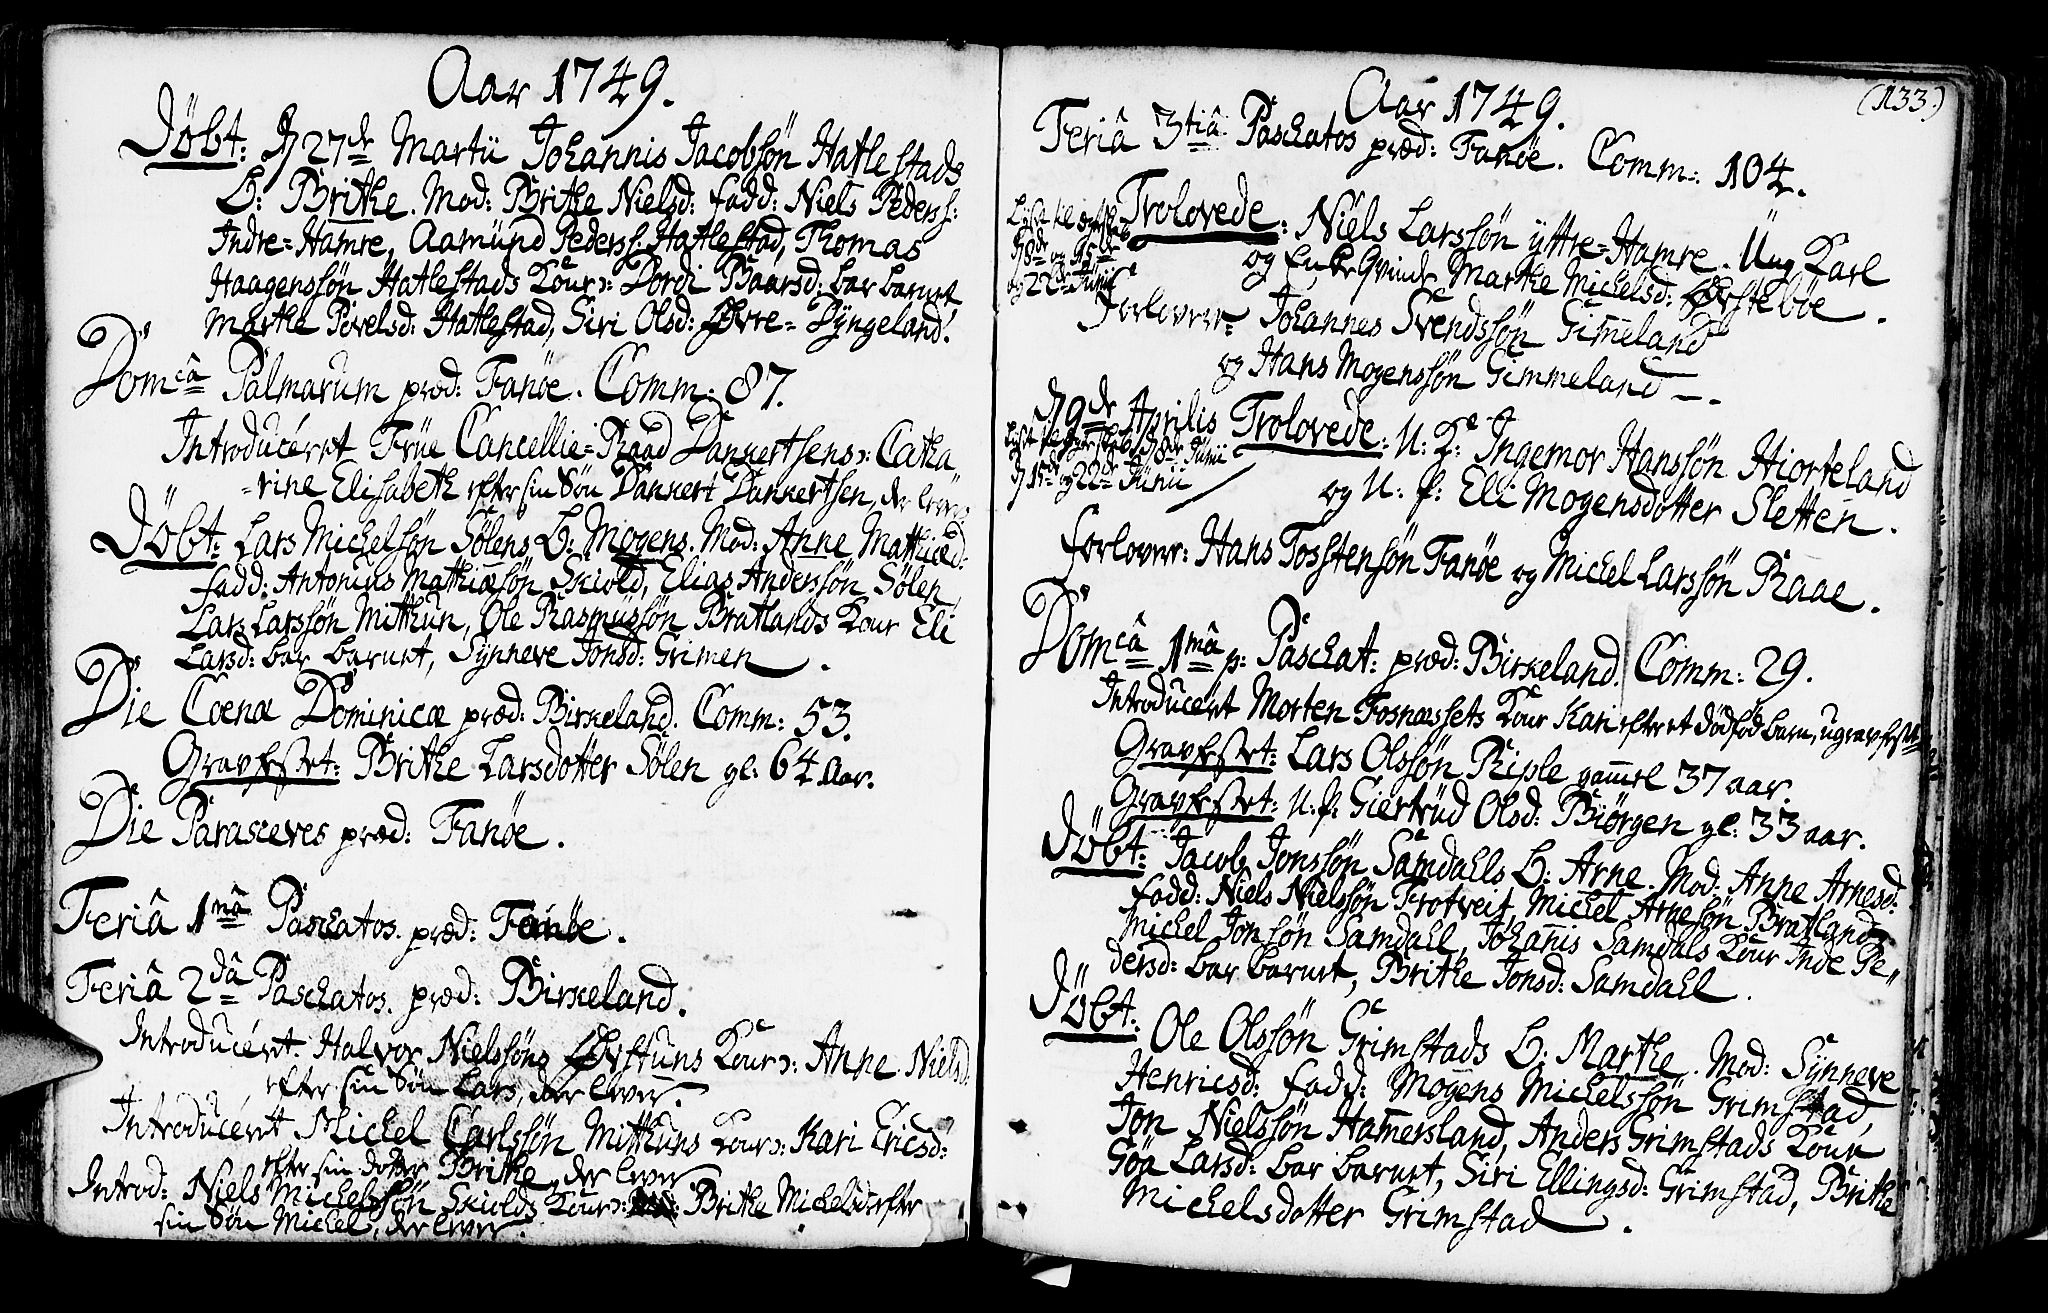 Aar 1749.
Döbt: D 27de Martii Johannis Jacobsön Hatlestads
B: Brithe. Mod: Brithe Nielsd: fadd: Niels Pederss:
Indre=Hamre, Aamund Pederss: Hatlestad, Thomas
Haagenssön Hatlestads Kone: Dordi Baarsd: bar barnet,
Marthe Povelsd: Hatlestad, Siri Olsd: Øvre= Dyngeland.
Domcâ Palmarum præd: Fanöe. Comm: 87.
Introduceret Frue Cancellie=Raad Dankertsens: Catha
=rine Elisabeth efter sin Sön Dankert Dankertsen, der lever.
Döbt: Lars Michelsön Sölens B: Mogens. Mod: Anne Mathiæd:
fadd: Antonius Mathiæsön Skiold, Elias Anderssön Sölen,
Lars Larssön Mitthun, Ole Rasmussön Bratlands Kone Eli
Larsd: bar barnet, Synneve Jonsd: Grimen.
Die Coenæ Dominicæ præd: Birkeland. Comm: 53.
Gravfestet: Brithe Larsdotter Sölen gl: 64 Aar.
Die Parasceves præd: Fanöe.
Feriâ 1mâ Paschatos. præd: Fanöe.
Feriâ 2dâ Paschatos. præd: Birkeland.
Introduceret. Halvor Nielssöns Øvstuns Kone: Anne Nielsd:
efter sin Sön Lars, der lever.
Introduceret Michel Carlssön Mitthuns Kone: Kari Ericsd:
efter sin dotter Brithe, der lever
Introd: Niels Michelssön Skiolds Kone: Brithe Michelsd: efter
sin Sön Michel, der lever.
Aar 1749.
(133.)
Feriâ 3tiâ Paschatos præd: Fanöe. Comm: 104.
Trolovede: Niels Larssön yttre=Hamre. Ung Karl
og Enke Qvinde Marthe Michelsd: Øvsteböe.
D 8de og 15de
og 22de Junii
Forlover: Johannes Svendssön Gimeland
og Hans Mogenssön Gimmeland
D 9de Aprilis Trolovede: U: K: Ingemor Hanssön Hiorteland
D 8de Junii
D 15de og 22de Junii
og U: P: Eli Mogensdotter Sletten.
Forlover: Hans Tosstensön Fanöe og Michel Larssön Raae.
Domcâ 1mâ p: Paschat: præd: Birkeland. Comm: 29.
Introduceret Morten Fosnæssets Kone Kari efter et Dödföd barn, ugravfest
Gravfestet: Lars Olssön Riple gammel 37 aar.
Gravfestet: U: P: Giertrud Olsd: Biörgen gl: 33 aar.
Döbt: Jacob Jonssön Samdahls B: Arne. Mod: Anne Arnesd:
fadd: Niels Nielssön Frotveit, Michel Arnesön Bratland,
Michel Jonssön Samdahl, Johannis Samdals Kone Inde Pe=
dersd: bar barnet, Brithe Jonsd: Samdahl.
Döbt: Ole Olssön Grimstads B: Marthe. Mod: Synneve
Henricsd: fadd: Mogens Michelssön Grimstad,
Jon Nielssön Hamersland, Anders Grimstads Kone
Göa Larsd: bar barnet, Siri Ellingsd: Grimstad, Brithe
Michelsdotter Grimstad.